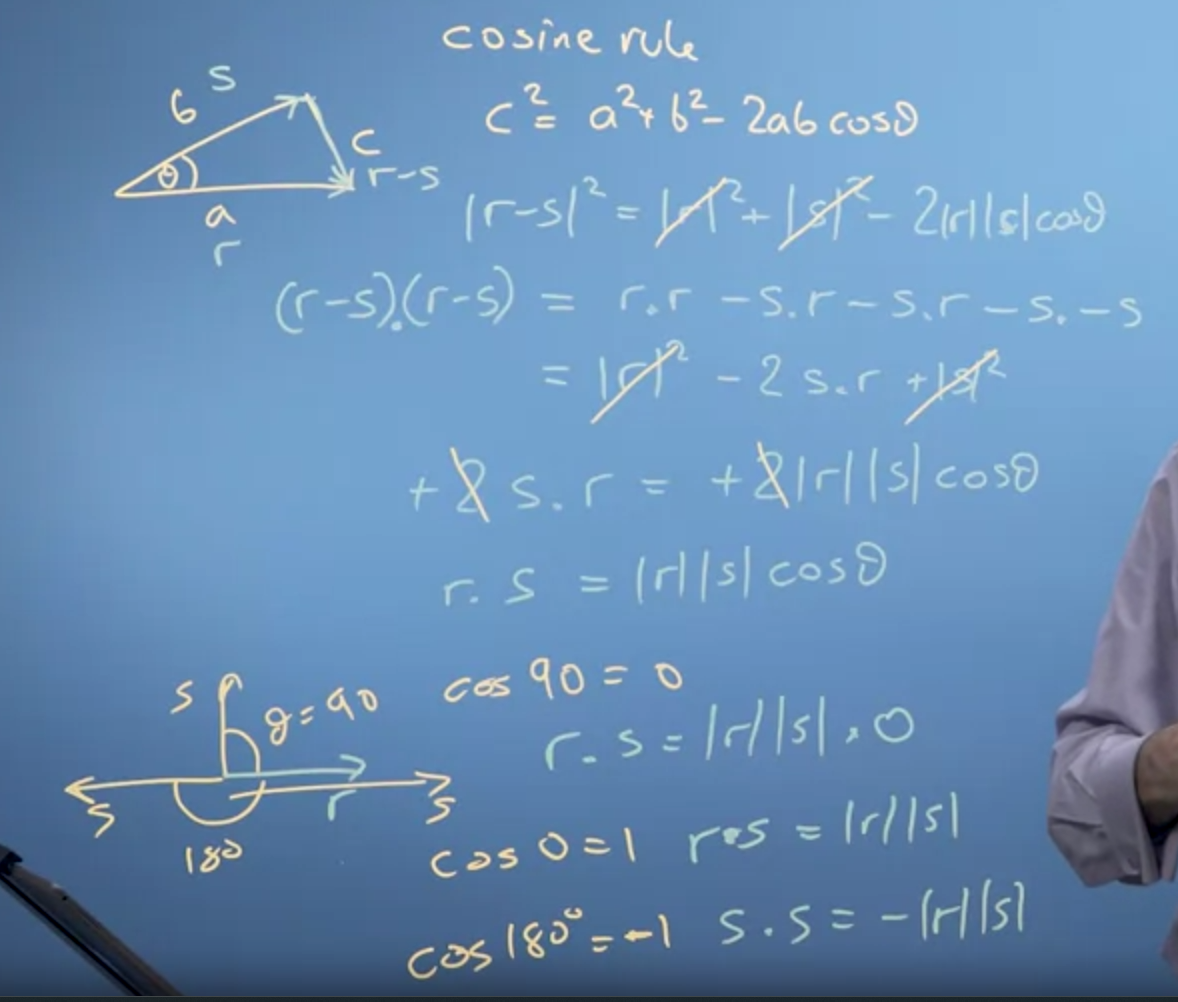 cosine rule
b s
c² = a² + b² - 2ab cosθ
θ
c
r-s
a
r
|r-s|² = |r|² + |s|² - 2|r||s|cosθ
(r-s).(r-s) = r.r - s.r - s.r - s.-s
= |r|² - 2 s.r + |s|²
+2 s.r = +2|r||s| cosθ
r.s = |r||s| cosθ
s
θ = 90
cos 90 = 0
r.s = |r||s| × 0
s
r
s
180
cos 0 = 1 r.s = |r||s|
cos 180° = -1 s.s = -|r||s|